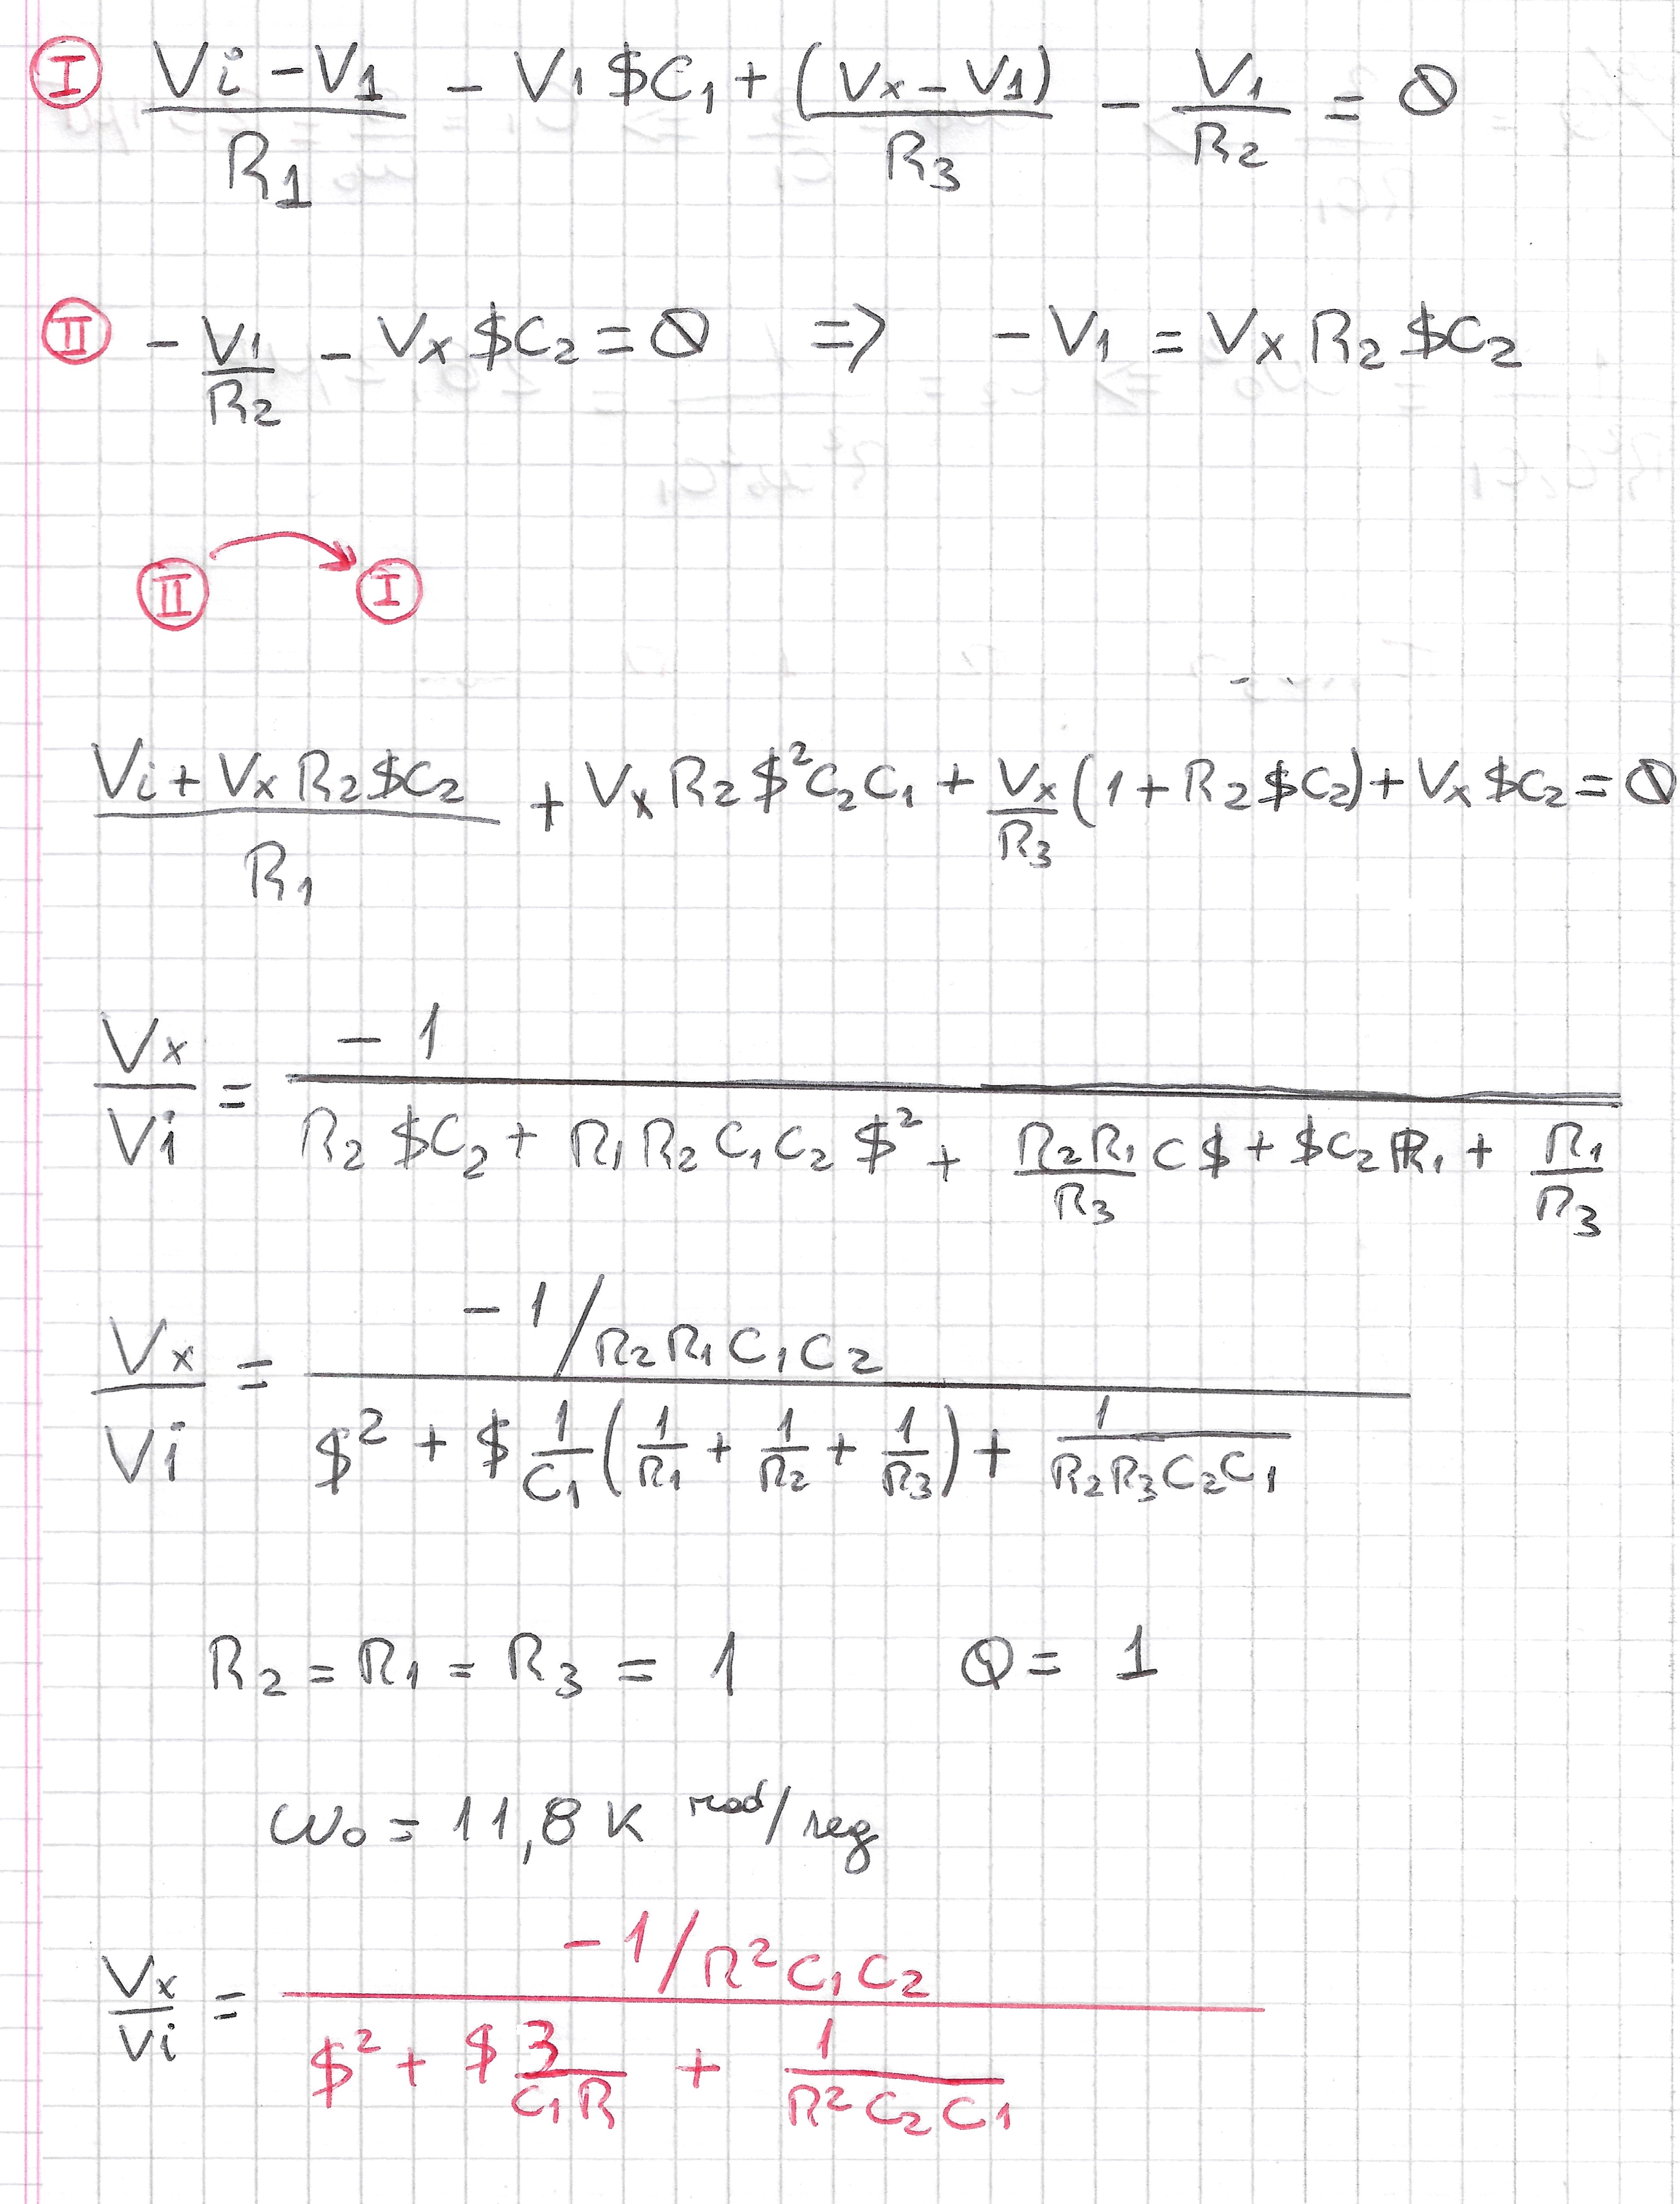 Ⓘ (Vi - V1)/R1 - V1 $C1 + (Vx - V1)/R3 - V1/R2 = 0
Ⓘⓘ - V1/R2 - Vx $C2 = 0 => - V1 = Vx R2 $C2
II → I
(Vi + Vx R2 $C2)/R1 + Vx R2 $² C2 C1 + Vx/R3 (1 + R2 $C2) + Vx $C2 = 0
Vx/Vi = -1 / (R2 $C2 + R1 R2 C1 C2 $² + (R2 R1/R3) C $ + $C2 R1 + R1/R3)
Vx/Vi = (-1/R2 R1 C1 C2) / ($² + $ 1/C1 (1/R1 + 1/R2 + 1/R3) + 1/(R2 R3 C2 C1))
R2 = R1 = R3 = 1 Q = 1
ω0 = 11,8 K rad/seg
Vx/Vi = (-1/R² C1 C2) / ($² + $ 3/(C1 R) + 1/(R² C2 C1))